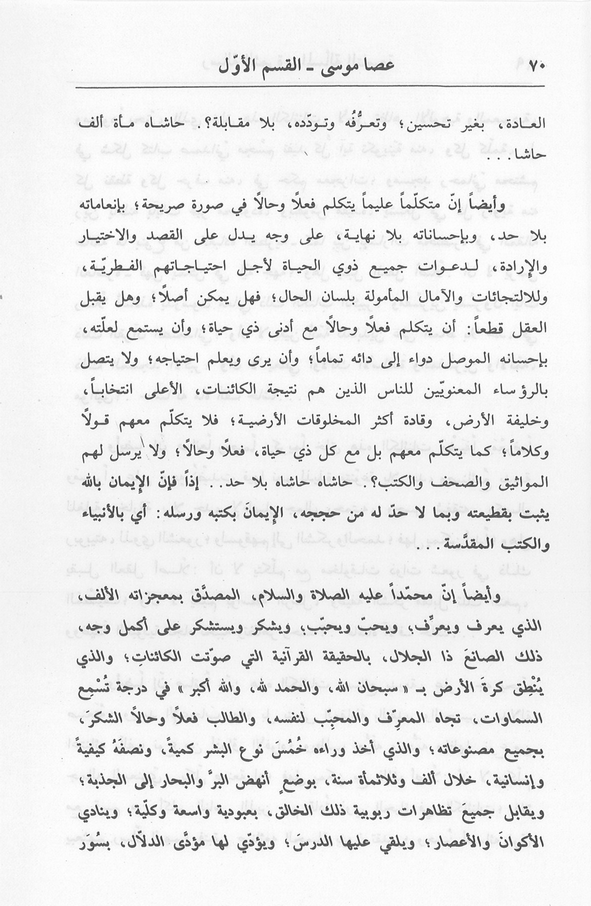 ٧٠ عصا موسى - القسم الأوّل
العادة، بغير تحسين؛ وتعرُّفُه وتودّده، بلا مقابلة؟. حاشاه مأة ألف
حاشا...
وأيضاً إنّ متكلّماً عليماً يتكلم فعلاً وحالاً في صورة صريحة؛ بإنعاماته
بلا حد، وبإحساناته بلا نهاية، على وجه يدل على القصد والاختيار
والإرادة، لـدعوات جميع ذوي الحياة لأجل احتياجـاتهم الفطـريّة،
وللالتجائات والآمال المأمولة بلسان الحال؛ فهل يمكن أصلاً؛ وهل يقبل
العقل قطعاً: أن يتكلم فعلاً وحالاً مع أدنى ذي حياة؛ وأن يستمع لعلّته،
بإحسانه الموصل دواء إلى دائه تماماً؛ وأن يرى ويعلم احتياجه؛ ولا يتصل
بالرؤساء المعنويّين للناس الذين هم نتيجة الكائنات، الأعلى انتخاباً،
وخليفة الأرض، وقادة أكثر المخلوقات الأرضية؛ فلا يتكلّم معهم قـولاً
وكلاماً؛ كما يتكلّم معهم بل مع كل ذي حياة، فعلاً وحالاً؛ ولا يرسل لهم
المواثيق والصحف والكتب؟. حاشاه حاشاه بلا حد... إذاً فإنّ الإيمان بالله
يثبت بقطيعته وبما لا حدّ له من حججه، الإيمانَ بكتبه ورسله: أي بالأنبياء
والكتب المقدَّسة...
وأيضاً إنّ محمّداً عليه الصلاة والسلام، المصدَّق بمعجزاته الألف،
الذي يعرف ويعرِّف؛ ويحبّ ويحبّب؛ ويشكر ويستشكر على أكمل وجه،
ذلك الصانعَ ذا الجلال، بالحقيقة القرآنية التي صوّتت الكائناتِ؛ والذي
يُنْطِق كرةَ الأرض بـ «سبحان الله، والحمد لله، والله أكبر» في درجة تُسْمِع
السماوات، تجاه المعرِّف والمحبِّب لنفسه، والطالب فعلاً وحالاً الشكرَ،
بجميع مصنوعاته؛ والذي أخذ وراءه خُمُسَ نوع البشر كميةً، ونصفَهُ كيفيةً
وإنسانية، خلال ألف وثلاثمأة سنة، بوضعٍ أنهض البرَّ والبحار إلى الجذبة؛
ويقابل جميعَ تظاهرات ربوبية ذلك الخالق، بعبودية واسعة وكلّية؛ وينادي
الأكوانَ والأعصار؛ ويلقي عليها الدرسَ؛ ويؤدّي لها مؤدَّى الدلاّل، بسُوَر